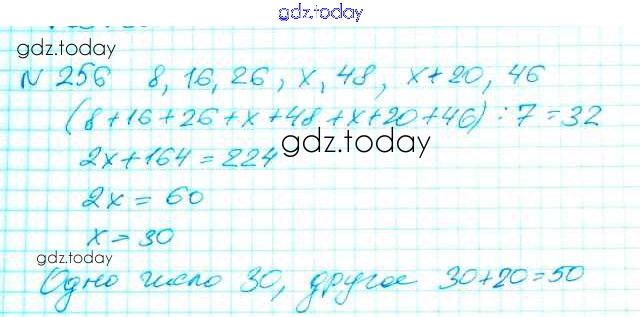 gdz.today
gdz.today
N 256 8, 16, 26, x, 48, x+20, 46
(8+16+26+x+48+x+20+46) : 7 = 32
gdz.today
2x+164=224
2x = 60
x = 30
gdz.today
Одно число 30, другое 30+20=50